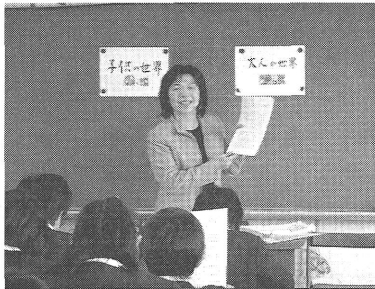 子供の世界
大人の世界